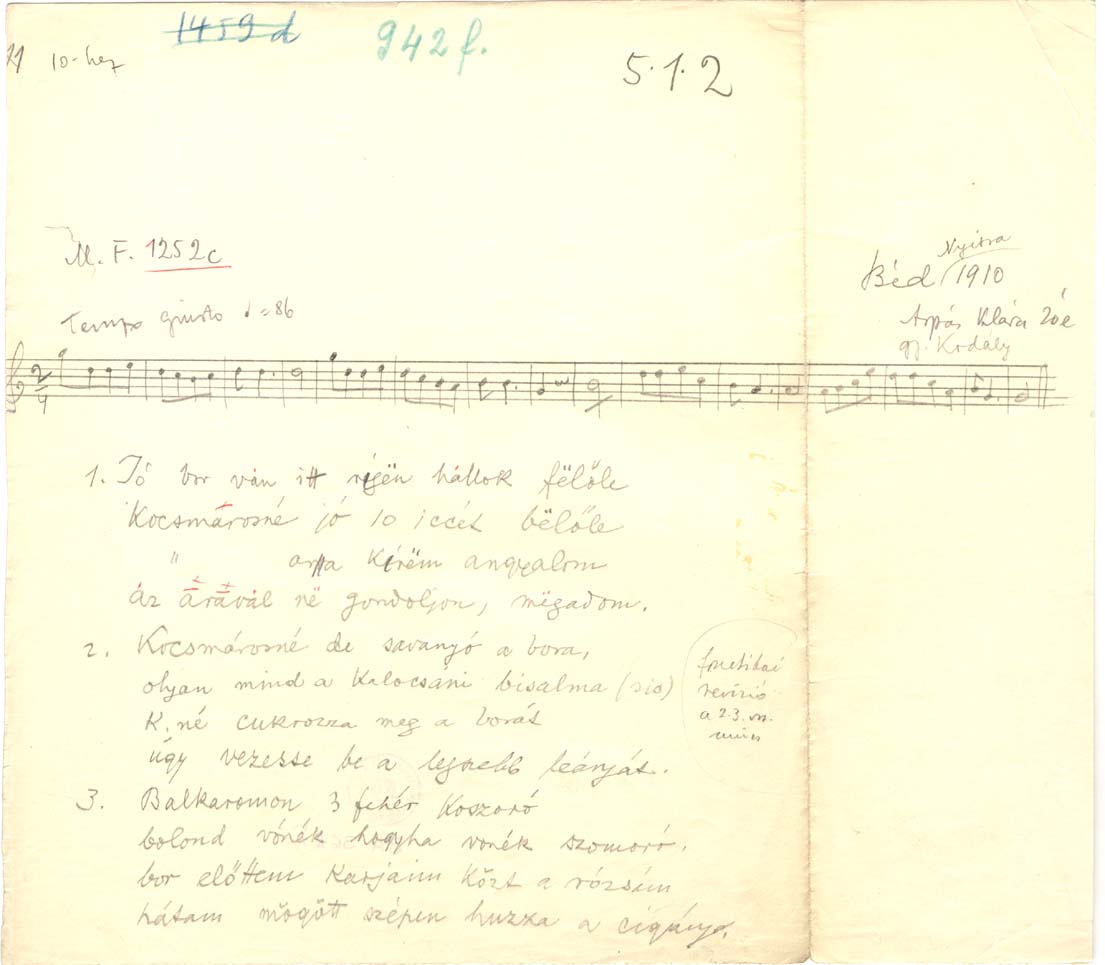 1459 d
942 f.
5.1.2
10-hez
M. F. 1252c
Nyitra
Béd 1910
Árpás Klára 20 é
gy. Kodály
Tempo giusto ♩=86
2/4
1. Jó bor ván itt rigën hállok fëlőle
Kocsmárosné jó 10 iccét bëlőle
" arra kírëm angyalom
áz ārāvál në gondoljon, mëgadom.
2. Kocsmárosné de savanyó a bora,
olyan mind a kalocsáni bisalma (sic)
K.né cukrozza meg a borát
úgy vezesse be a legszebb leányát.
fonetikai
revizió
a 2.3. vsz.
nincs
3. Balkaromon 3 fehér koszoró
bolond vónék hogyha vonék szomoró.
bor előttem karjaim közt a rózsám
hátam mögött szépen huzza a cigány.